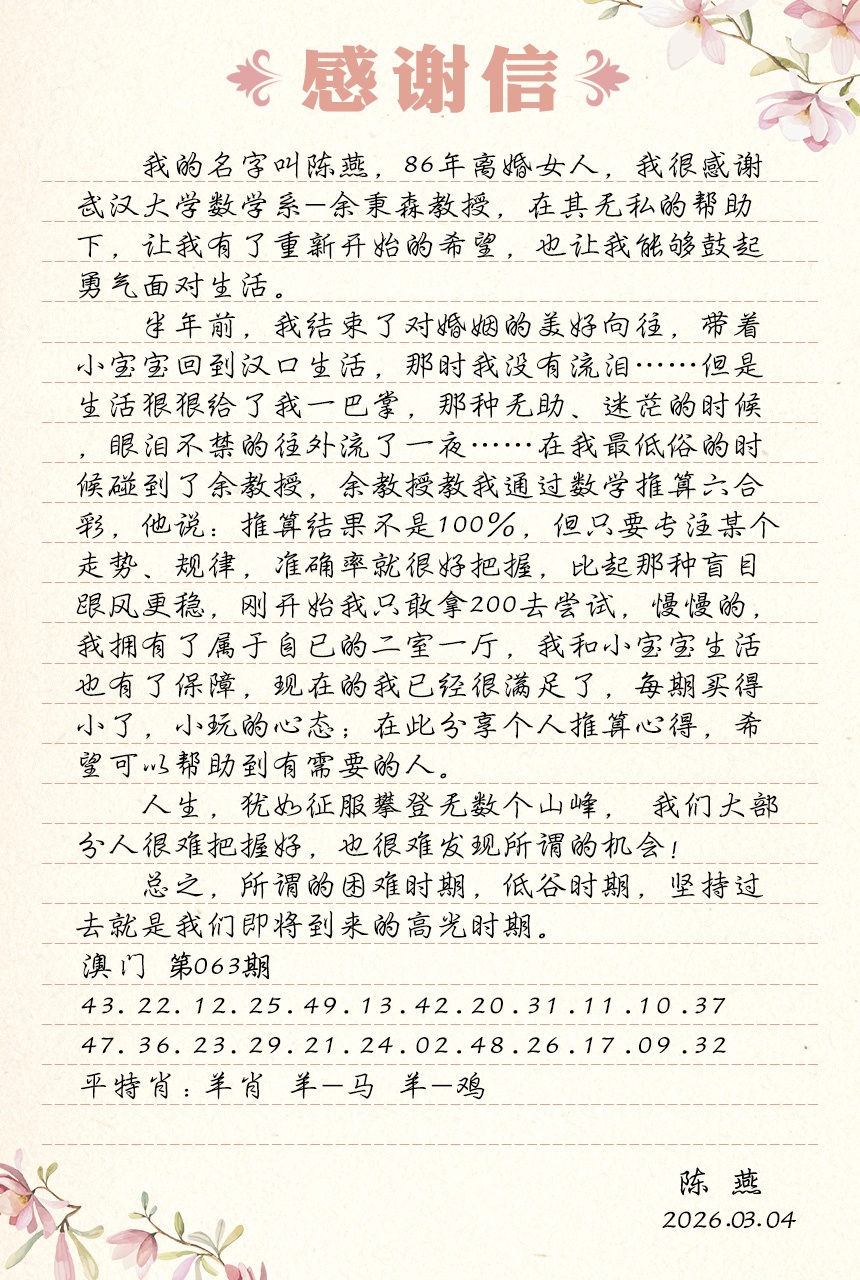 感谢信
我的名字叫陈燕，86年离婚女人，我很感谢
武汉大学数学系—余秉森教授，在其无私的帮助
下，让我有了重新开始的希望，也让我能够鼓起
勇气面对生活。
半年前，我结束了对婚姻的美好向往，带着
小宝宝回到汉口生活，那时我没有流泪……但是
生活狠狠给了我一巴掌，那种无助、迷茫的时候
，眼泪不禁的往外流了一夜……在我最低俗的时
候碰到了余教授，余教授教我通过数学推算六合
彩，他说：推算结果不是100%，但只要专注某个
走势、规律，准确率就很好把握，比起那种盲目
跟风更稳，刚开始我只敢拿200去尝试，慢慢的，
我拥有了属于自已的二室一厅，我和小宝宝生活
也有了保障，现在的我已经很满足了，每期买得
小了，小玩的心态；在此分享个人推算心得，希
望可以帮助到有需要的人。
人生，犹如征服攀登无数个山峰， 我们大部
分人很难把握好，也很难发现所谓的机会！
总之，所谓的困难时期，低谷时期，坚持过
去就是我们即将到来的高光时期。
澳门 第063期
43.22.12.25.49.13.42.20.31.11.10.37
47.36.23.29.21.24.02.48.26.17.09.32
平特肖：羊肖 羊—马 羊—鸡
陈 燕
2026.03.04